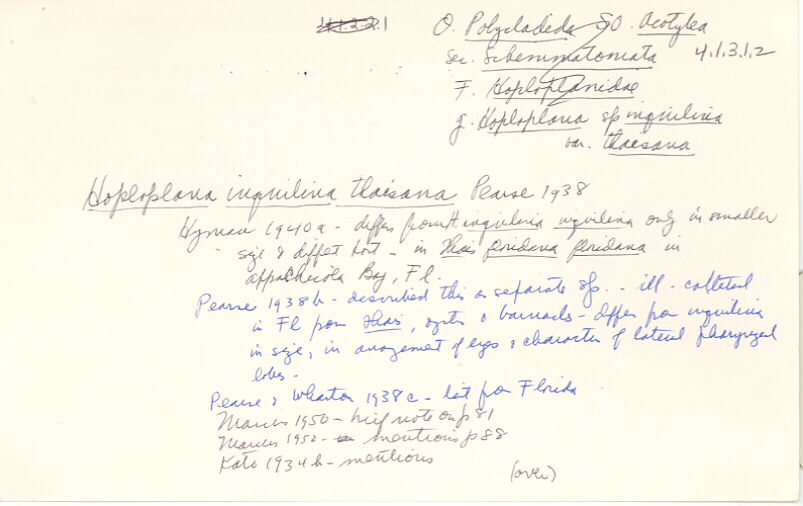 4.1.2.2.1
O. Polycladida SO. Acotylea
Sec. Schemmatomata 4.1.3.1.2
F. Hoploplanidae
g. Hoploplana sp inquilina
var. thaisana
Hoploplana inquilina thaisana Pearse 1938
Hyman 1940a - differs from H. inquilina inquilina only in smaller
size & diffet host - in Thais floridana floridana in
appalachicola Bay, Fl.
Pearse 1938b - described this as separate sp. - ill - collected
in Fl from Thais, oysters & barnacles - differ from inquilina
in size, in arrangement of eyes & character of lateral pharyngeal
lobes -
Pearse & Wharton 1938c - list from Florida
Marcus 1950 - brief note on p81
Marcus 1952 - mentions p88
Kato 1934b - mentions
(over)